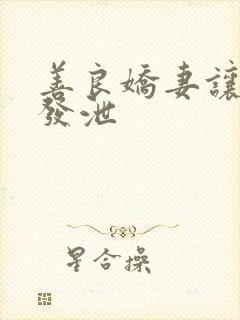 善良嬌妻讓
發泄
星合操